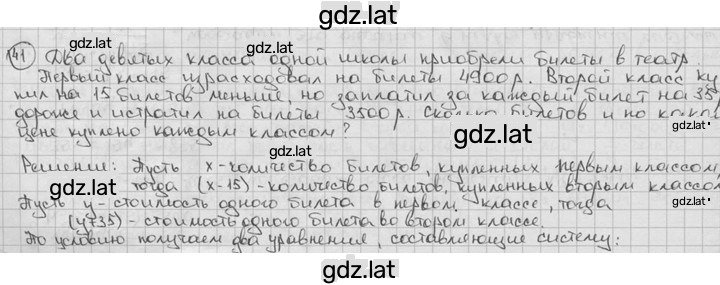 gdz.lat
41 Два девятых класса одной школы приобрели билеты в театр.
Первый класс израсходовал на билеты 4900р. Второй класс ку
пил на 15 билетов меньше, но заплатил за каждый билет на 35
дороже и истратил на билеты 3500р. Сколько билетов и по какой
gdz.lat
цене куплено каждым классом?
Решение: Пусть x-количество билетов, купленных первым классом,
тогда (x-15)-количество билетов, купленных вторым классом
gdz.lat gdz.lat
Пусть y-стоимость одного билета в первом классе, тогда
(y+35)-стоимость одного билета во втором классе.
По условию получаем два уравнения, составляющие систему:
gdz.lat